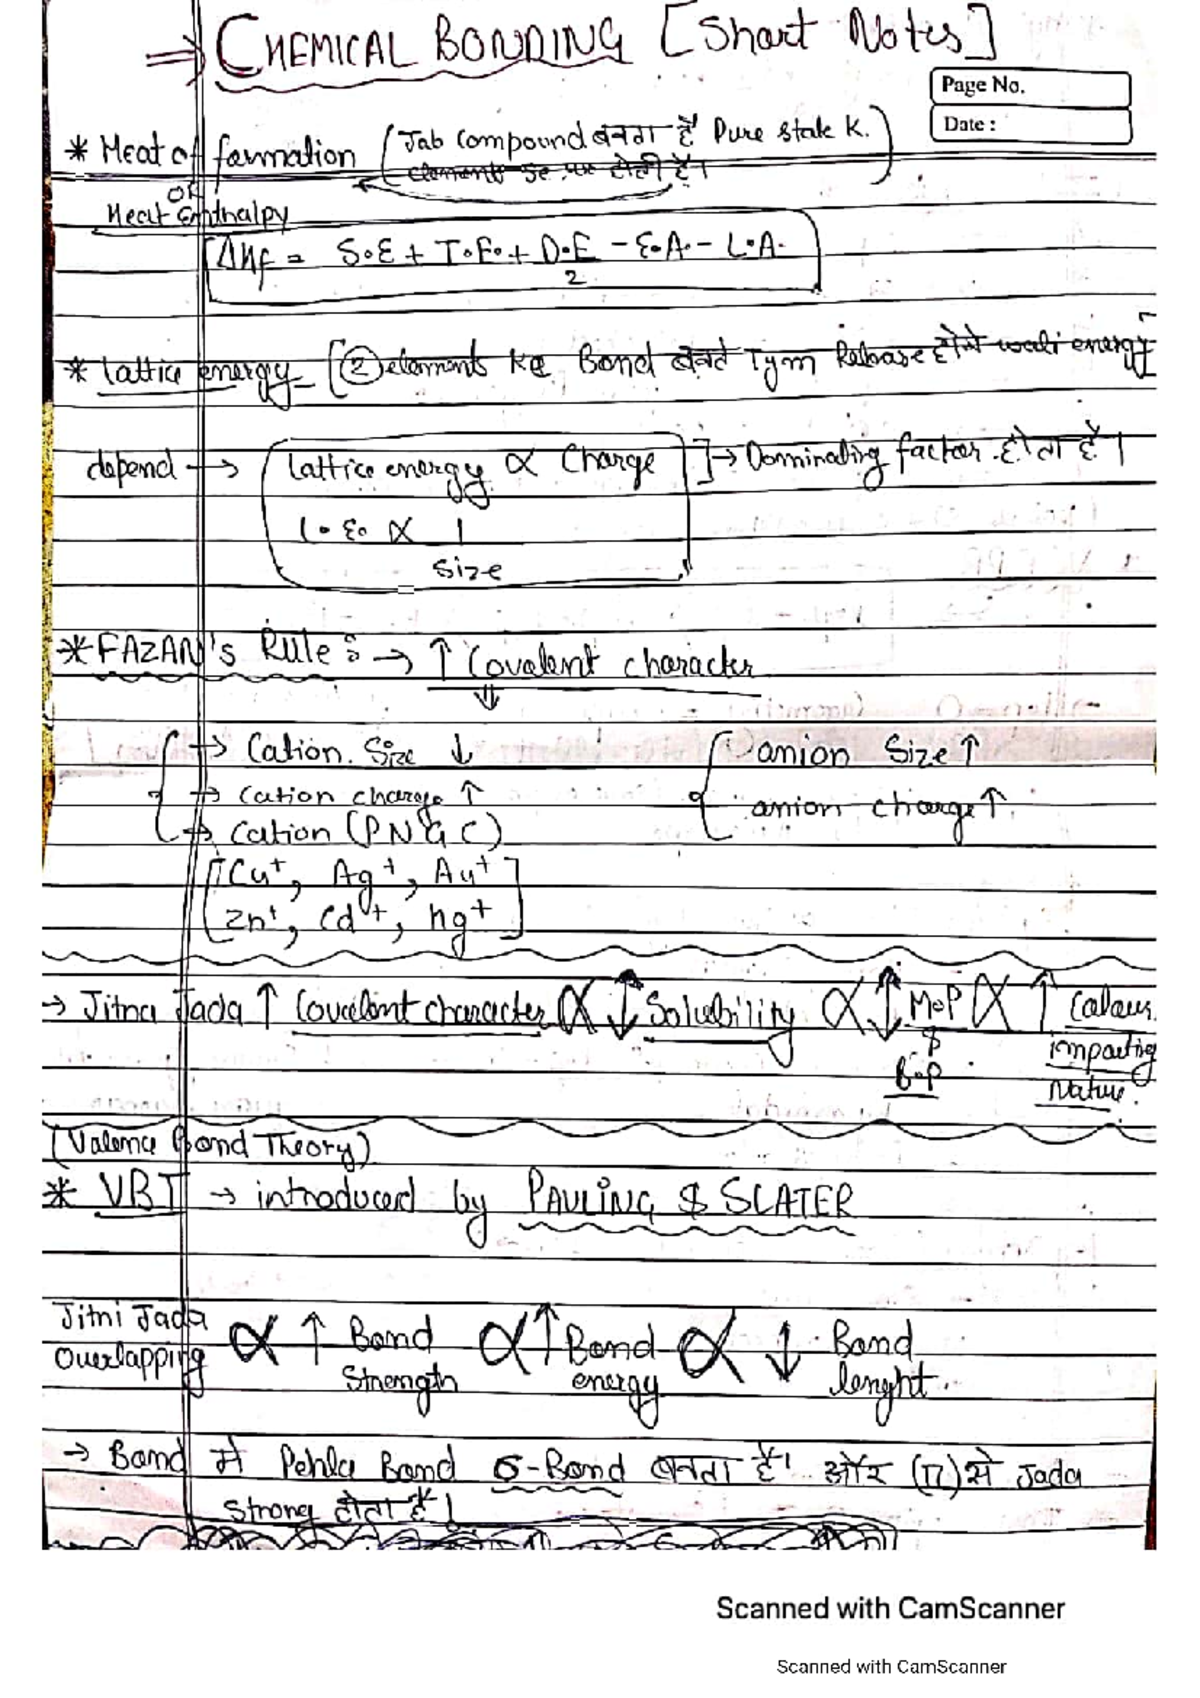 ⇒ CHEMICAL BONDING [Short Notes]
Page No.
Date :
* Heat of formation (Jab Compound बनता हैं Pure state K.
elements se .... होती हैं।
OR
Heat Enthalpy
ΔHf = S.E + T.E. + D.E/2 - E.A. - L.A.
* Lattice energy [② elements Ke Bond बनते Tym Release होने wali energy]
depend → Lattice energy ∝ Charge ] → Dominating factor होता हैं।
L.E. ∝ 1
Size
* FAZAN's Rule : → ↑ Covalent character
⇓
→ Cation. Size ↓
anion Size ↑
→ cation charge ↑
anion charge ↑
→ Cation (PNGC)
[Cu+, Ag+, Au+
Zn+, Cd+, hg+]
→ Jitna Jada ↑ Covalent character ∝ ↕ Solubility ∝ ↕ M.P ∝ ↑ Colour
$
B.P
imparting
Nature.
(Valence Bond Theory)
* VBT → introduced by PAULING $ SLATER
Jitni Jada
Overlapping ∝ ↑ Bond Strength ∝ ↑ Bond energy ∝ ↓ Bond lenght.
→ Bond में Pehla Bond σ-Bond बनता हैं। और (π) से Jada
strong होता हैं।
Scanned with CamScanner
Scanned with CamScanner